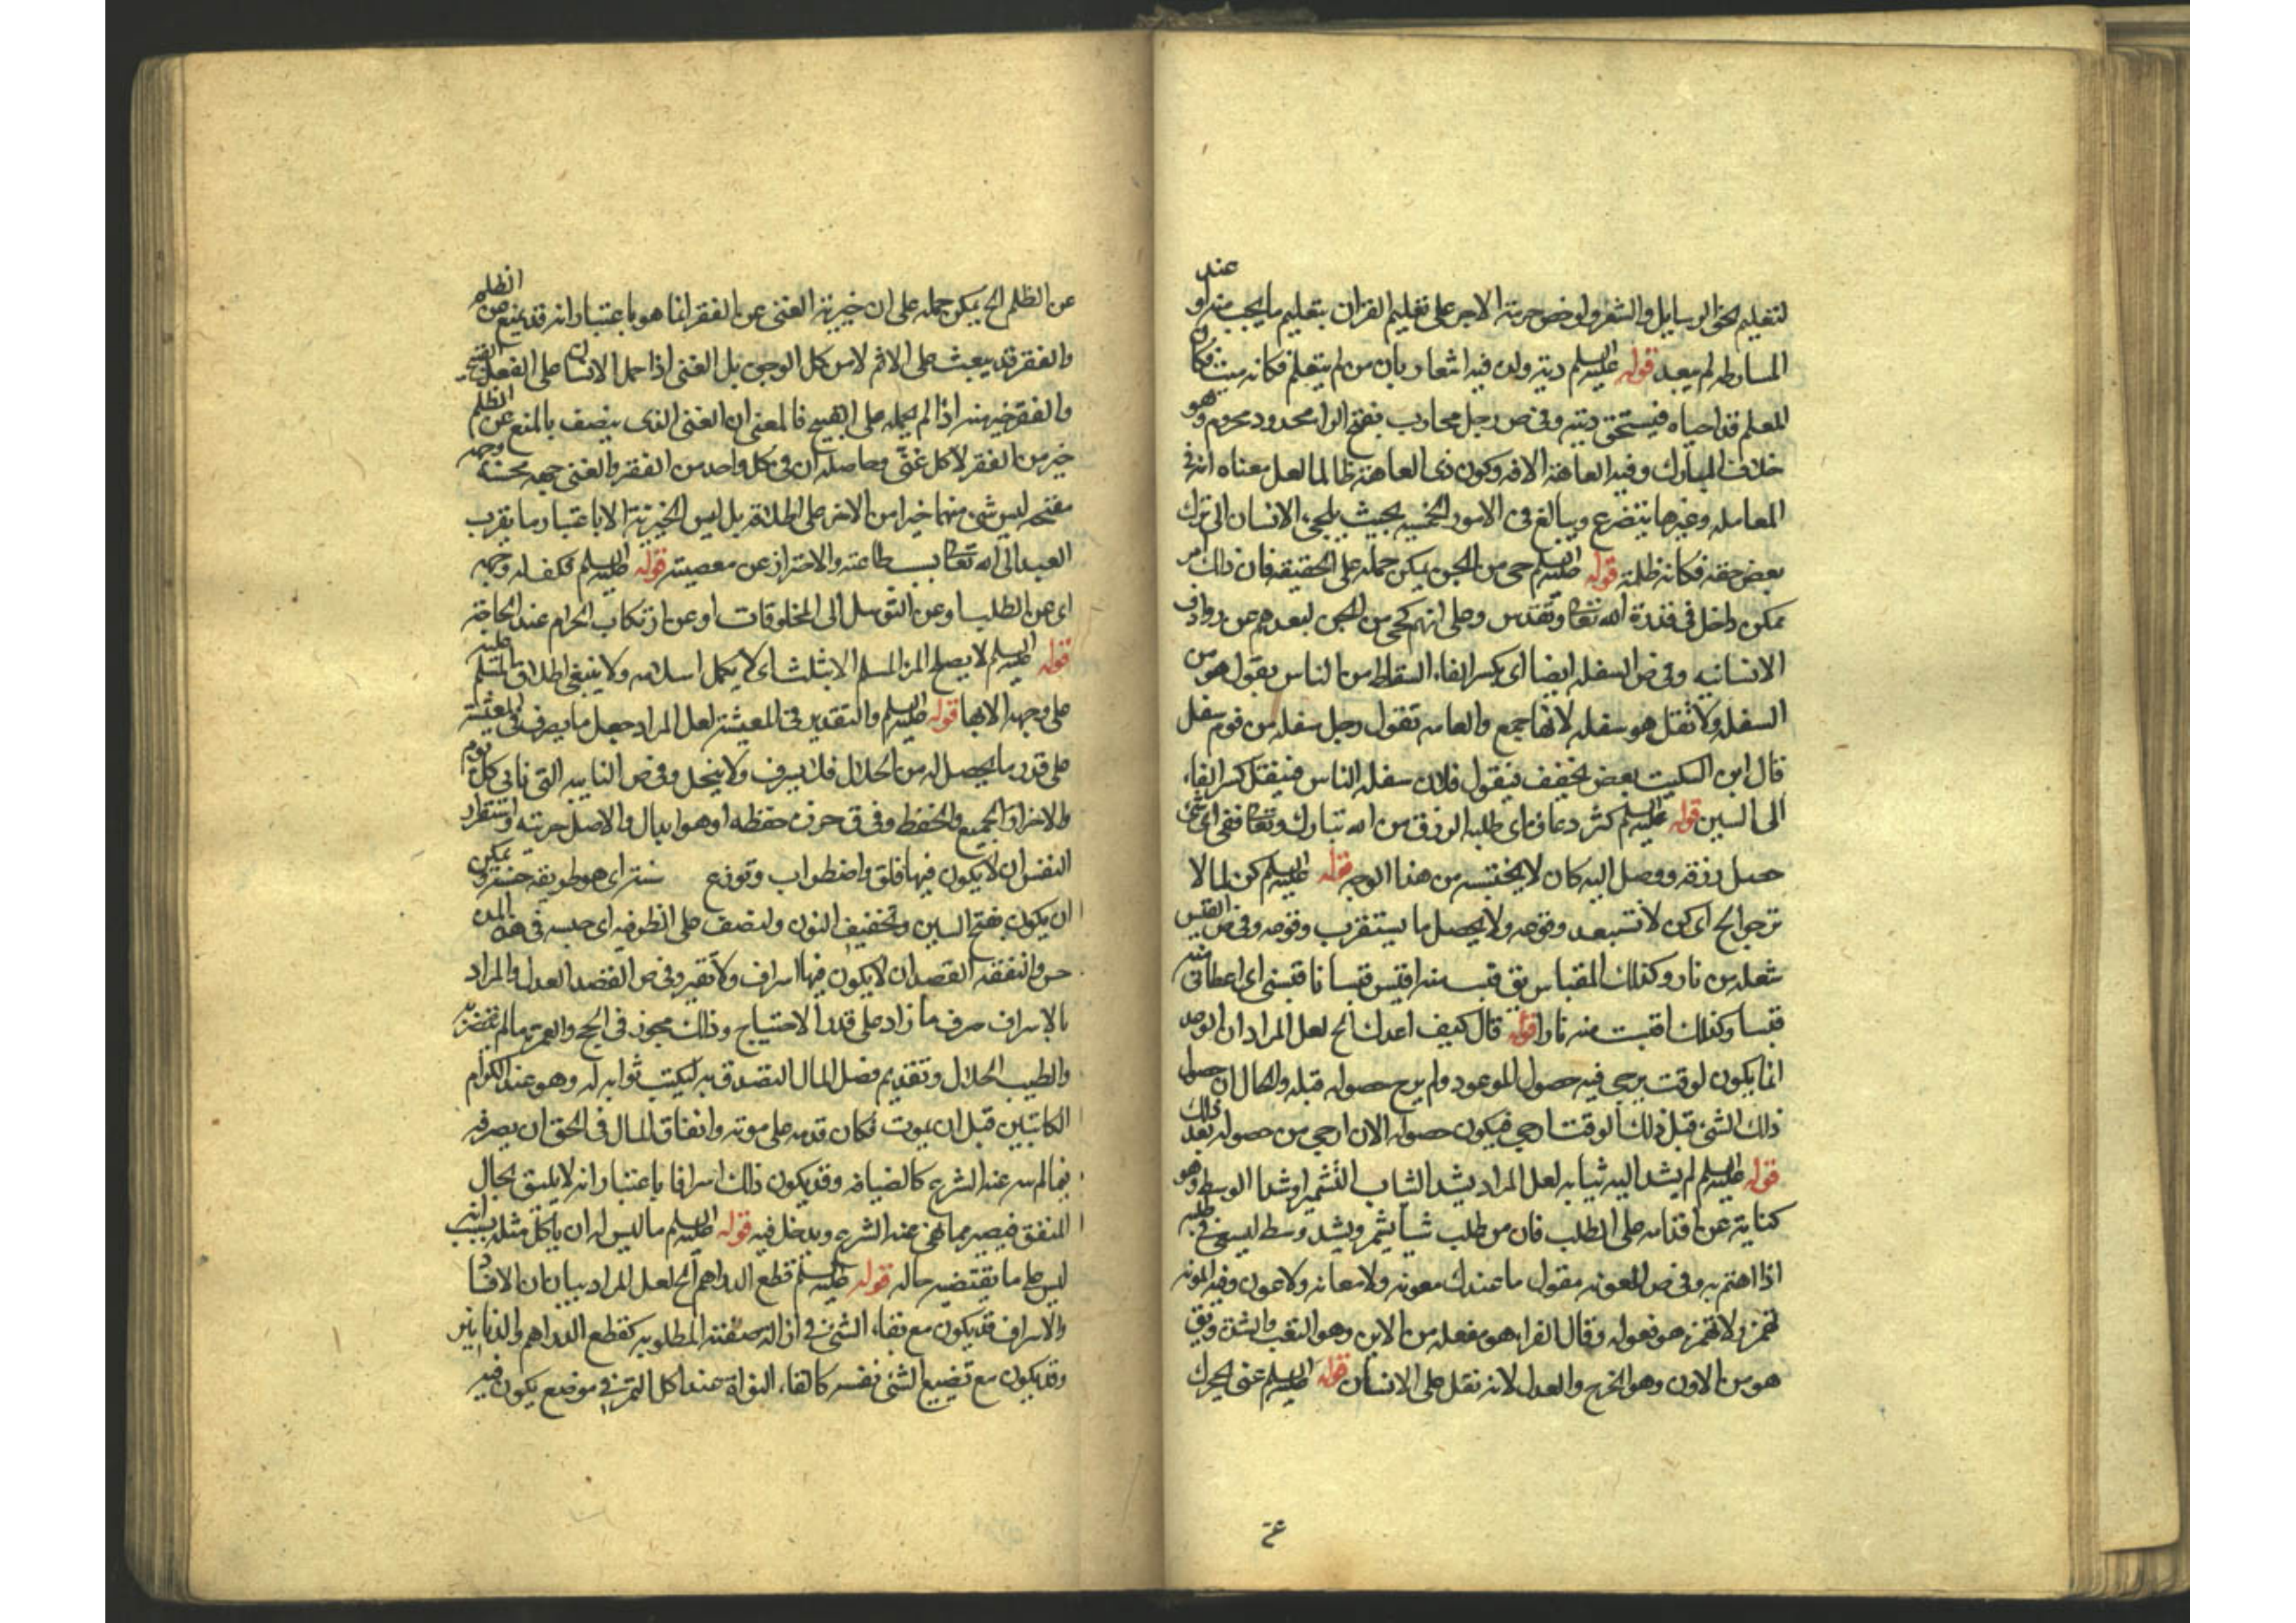 لتعليم اخذ الرسايل والشعر ولو خص حرمة الاجر على تعليم القران بتعليم ما يجب منه او عند
المشارطه لم يبعد قوله عليه السلم دية ولده فيه اشعار بان من لم يتعلم فكانه ميت فكان
المعلم قد احياه فيستحق ديته وفي ص رجل محارب بفتح الراء محدود محروم وهو
خلاف المبارك وفيه العاهة الافة وكون ذي العاهة ظالما لعل معناه انه في
المعامله وغيرها يتضرع ويبالغ في الامور الخسيسة بحيث يلجيء الانسان الى ترك
بعض حقه فكانه ظلمه قوله عليه السلم حي من الجن يمكن حمله على الحقيقه فان ذلك امر
ممكن داخل في قدرة الله تعا وتقدس وعلى انهم كحي من الجن لبعدهم عن رواد
الانسانيه وفي ص السفله ايضا اي بكسر الفاء السقاط من الناس يقول هو من
السفله ولا تقل هو سفله لانها جمع والعامه تقول رجل سفله من قوم سفل
قال ابن السكيت بعض يخفف فيقول فلان سفله الناس فينقل كسر الفاء
الى السين قوله عليه السلم كثر دعاؤه اي طلبه الرزق من الله تبارك وتعا ففي اي شئ
حصل رزقه ووصل اليه كان لا يحتسبه من هذا الوجه قوله عليه السلم كن لما لا
ترجو الخ اي كن لا تستبعد وقوعه ولا يحصل ما يستقرب وقوعه وفي ص القبس
شعله من نار وكذلك المقباس يق قبست منه اقبس قبسا فاقبسني اي اعطاني منه
قبسا وكذلك اقبست منه نارا قوله قال كيف اعدك الخ لعل المراد ان الوعد
انما يكون لوقت يرجى فيه حصول الموعود ولم يرج حصوله قبله والحال ان حصول
ذلك الشئ قبل ذلك الوقت ارجى فيكون حصوله الان ارجى من حصوله بعد ذلك
قوله عليه السلم لم يشد اليه ثيابه لعل المراد بشد الثياب التشمير او شد الوسط وهو
كناية عن اقدامه على الطلب فان من طلب شيأ يشمر ويشد وسطه ليسعى في طلبه
اذا اهتم به وفي ص المعونه مقول ما عندك معونه ولا معانه ولا عون وفيه المونه
تهمز ولا تهمز هو فعوله وقال الفراء هو مفعله من الاين وهو التعب والشدة ويق
هو من الاون وهو الخرج والعدل لانه ثقل على الانسان قوله عليه السلم عنى لجيرك
عن الظلم الخ يمكن حمله على ان خيرية الغنى عن الفقر انما هو باعتبار انه قد يمنع من الظلم
والفقر قد يبعث على الاثم لا من كل الوجوه بل الغنى اذا حمل الانسان على الفعل القبيح
والفقر خير منه اذا لم يحمله على القبيح فالمعنى ان الغنى الذي يتصف بالمنع عن الظلم
خير من الفقر لا كل غنى وحاصله ان في كل واحد من الفقر والغنى جهه محسنة وجهه
مقبحه ليس شئ منهما خيرا من الاخر على الاطلاق بل ليس الخيرية الا باعتبار ما يقرب
العبد الى الله تعا بسبب طاعته والاحتراز عن معصيته قوله عليه السلم فكف له وجهه
اي عن الطلب او عن التوسل الى المخلوقات او عن ارتكاب الحرام عند الحاجة
قوله عليه السلم لا يصلح المرء المسلم الا بثلث اي لا يكمل اسلامه ولا ينبغي اطلاق المسلم عليه
على وجهه الا بها قوله عليه السلم والتقدير في المعيشة لعل المراد جعل ما يصرف في المعيشة
على قدر ما يحصل له من الحلال فلا يسرف ولا يبخل وفي ص النايبه التي تاتي كل يوم
والاحراز الجمع والحفظ وفي ق حرزه حفظه او هو ابدال والاصل حرسه واستقرار
النفس ان لا يكون فيها قلق واضطراب وتوزع سنته اي هو طريقة حسنة ويمكن
ان يكون بفتح السين وتخفيف النون ولنصف على الظرفيه اي حبسه في هذه المدن
حسن والنفقة القصد ان لا يكون فيها اسراف ولا تقتير وفي ص القصد العدل والمراد
بالاسراف صرف ما زاد على قدر الاحتياج وذلك مجوز في الحج والعمرة ما لم يتضرر به
والطيب الحلال وتقديم فضل المال التصدق به ليكتب ثوابه له وهو عند الكرام
الكاتبين قبل ان يموت فكان قدمه على موته وانفاق المال في الحق ان يصرفه
فيما لم ينه عنه الشرع كالضيافه وقد يكون ذلك اسرافا باعتبار انه لا يليق بحال
المنفق فيصير مما نهى عنه الشرع ويدخل فيه قوله عليه السلم ما ليس له ان ياكل مثله بسبب انه
ليس على ما يقتضيه حاله قوله عليه السلم قطع الدراهم الخ لعل المراد بيان ان الافساد
والاسراف قد يكون مع بقاء الشئ في ازالة صفته المطلوبه كقطع الدراهم والدنانير
وقد يكون مع تضييع الشئ نفسه كالقاء النواة عند اكل التمر في موضع يكون فيه